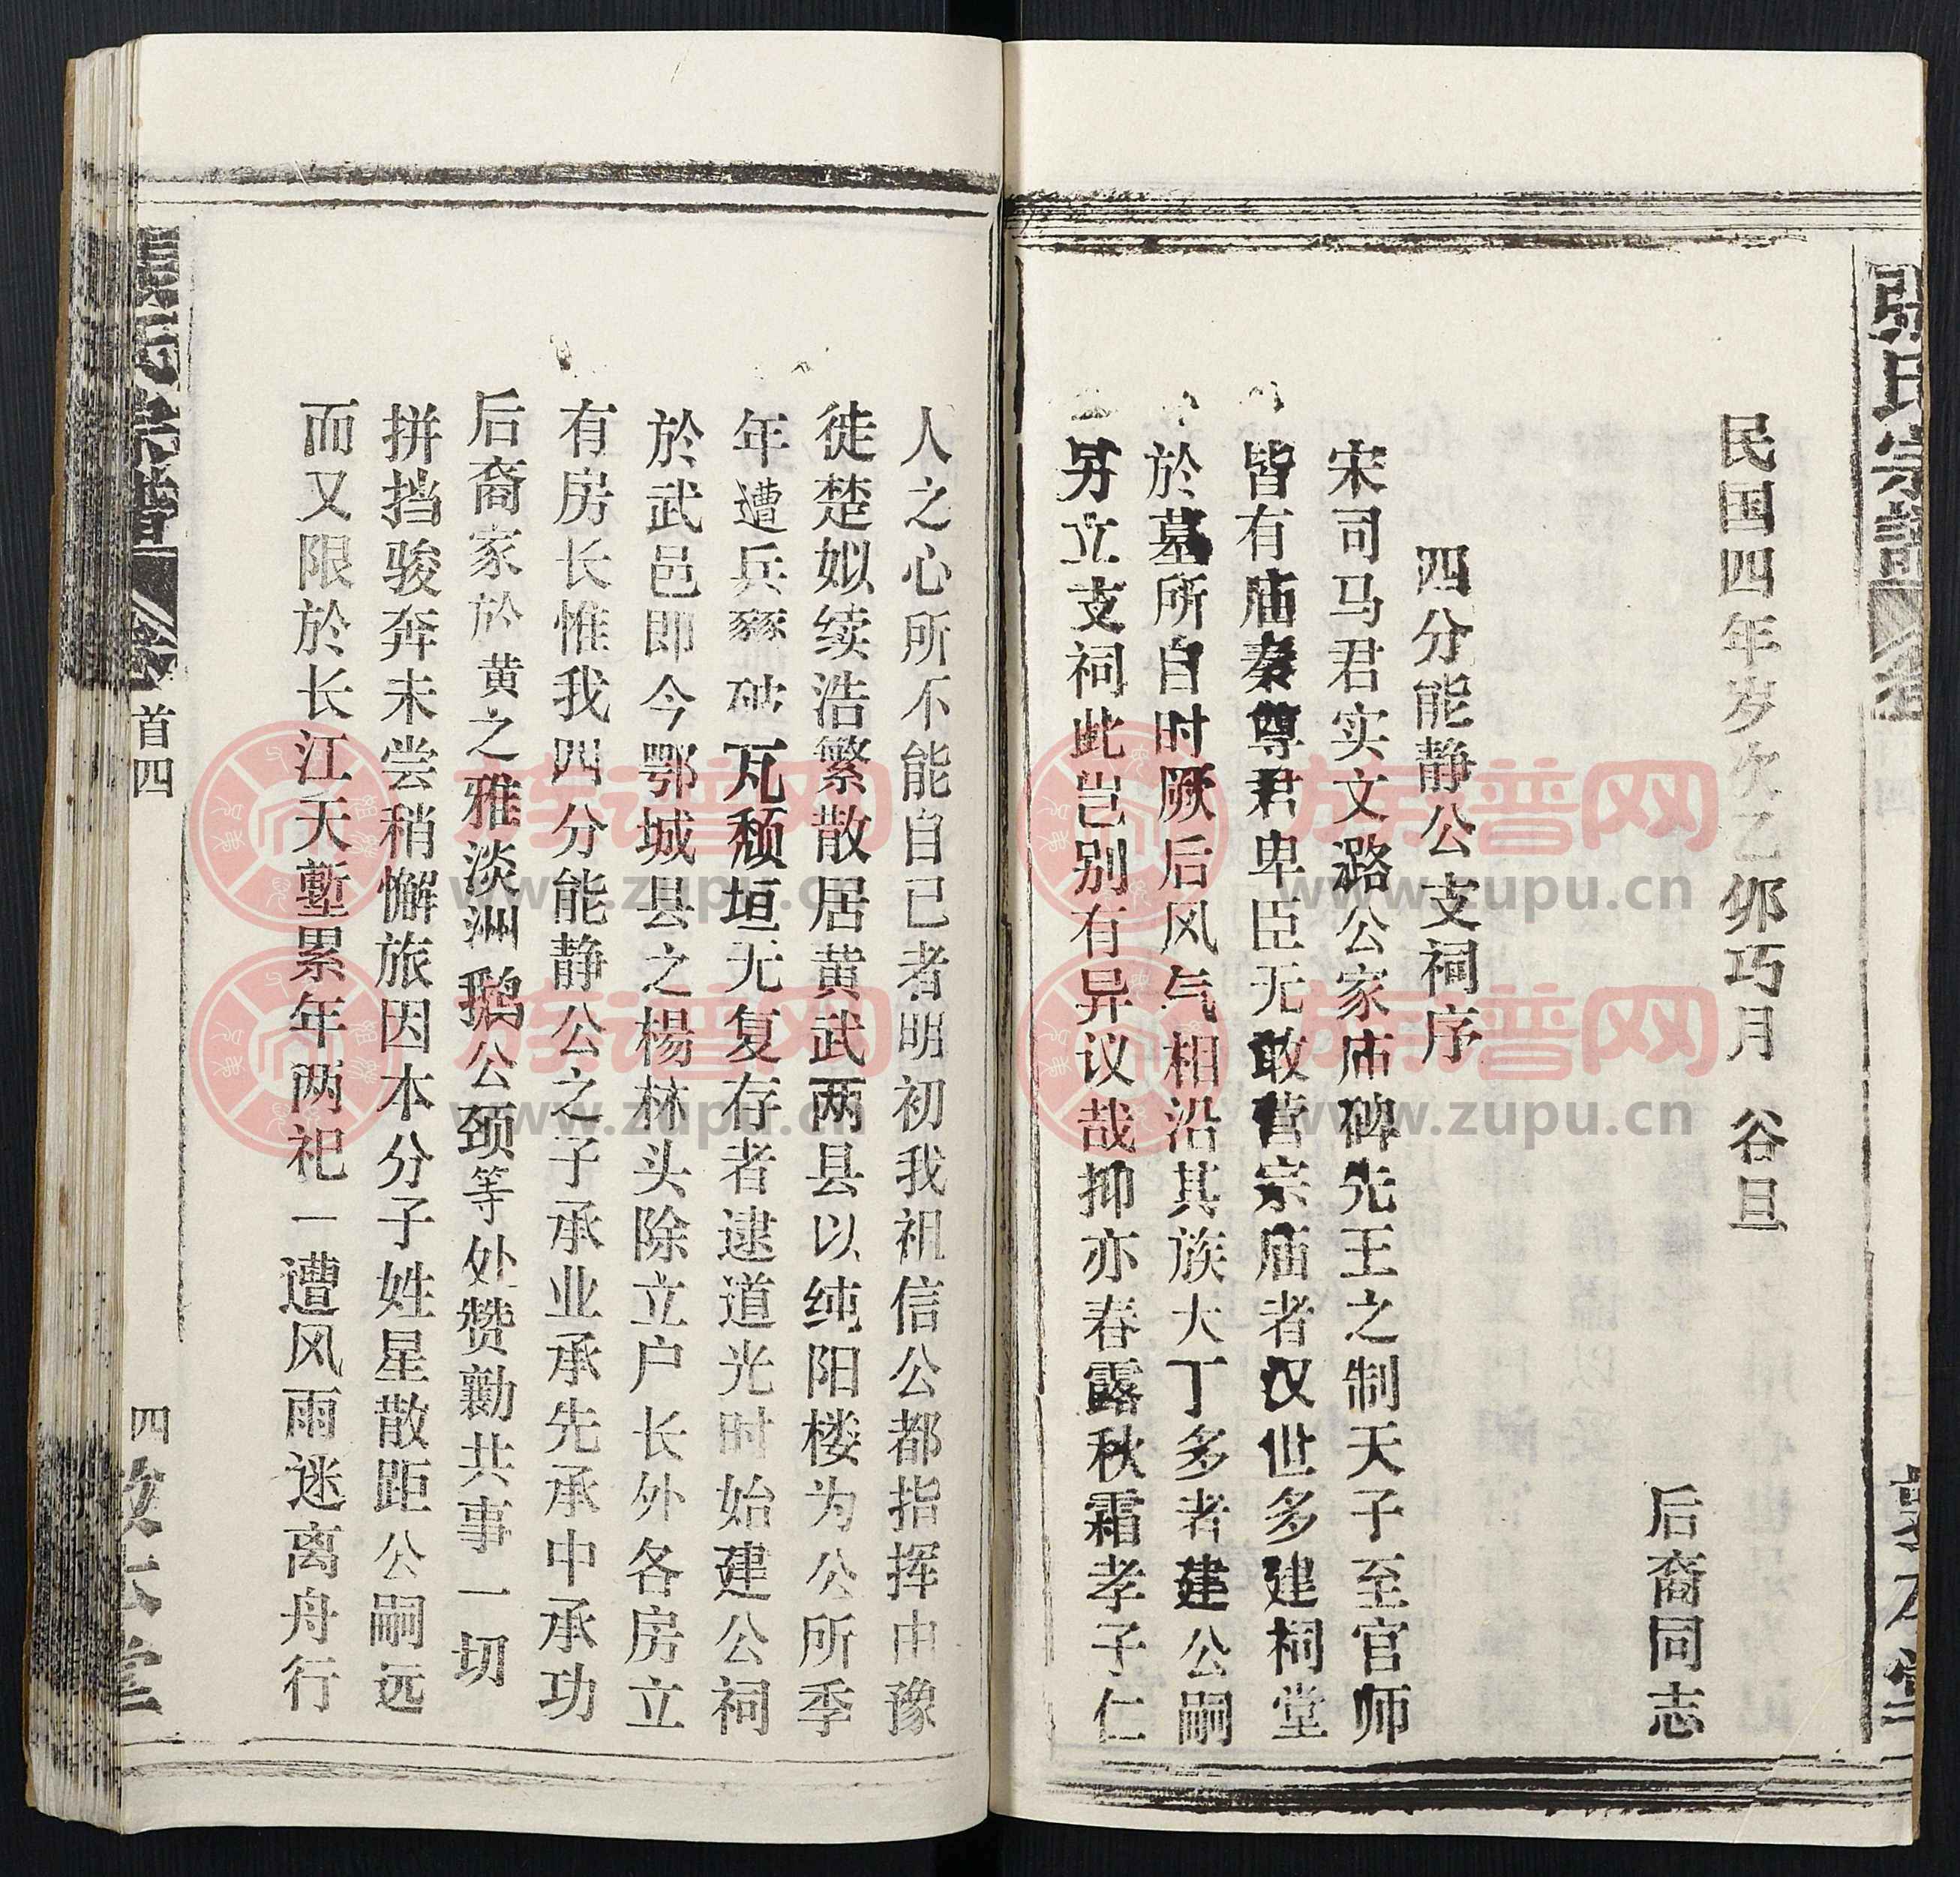 张氏宗譜
民国四年岁次乙卯巧月 谷旦
后裔同志
四分能静公支祠序
宋司马君实文潞公家庙碑先王之制天子至官师
皆有庙秦尊君卑臣无敢营宗庙者汉世多建祠堂
於墓所自时厥后风气相沿其族大丁多者建公嗣
另立支祠此岂别有异议哉抑亦春露秋霜孝子仁
人之心所不能自已者明初我祖信公都指挥由豫
徙楚姒续浩繁散居黄武两县以纯阳楼为公所季
年遭兵豩破瓦颓垣无复存者逮道光时始建公祠
於武邑即今鄂城县之楊林头除立户长外各房立
有房长惟我四分能静公之子承业承先承中承功
后裔家於黄之雅淡洲鹅公颈等处赞勷共事一切
拼挡骏奔未尝稍懈旅因本分子姓星散距公嗣远
而又限於长江天塹累年两祀一遭风雨迷离舟行
首四
四
族谱网
www.zupu.cn
族谱网
www.zupu.cn
族谱网
www.zupu.cn
族谱网
www.zupu.cn